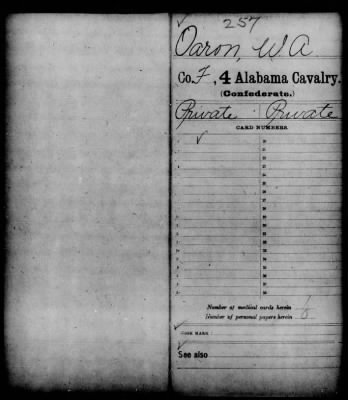 257
Oaron, W A
Co. F, 4 Alabama Cavalry.
(Confederate.)
Private Private
CARD NUMBERS.
Number of medical cards herein
Number of personal papers herein 6
BOOK MARK:
See also